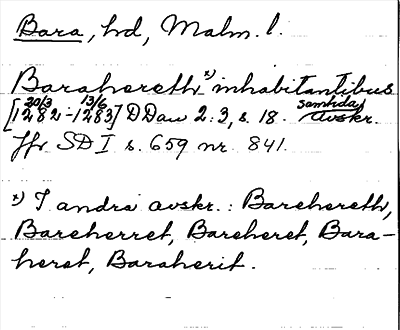 Bara, hd, Malm. l.
Barahæreth x) inhabitantibus
[1282 20/3 - 1283 13/6] DDan 2:3, s. 18. samtida avskr.
Jfr SD I s. 659 nr. 841.
x) I andra avskr.: Barehereth,
Bareherret, Bareheret, Bara-
heret, Baraherit.